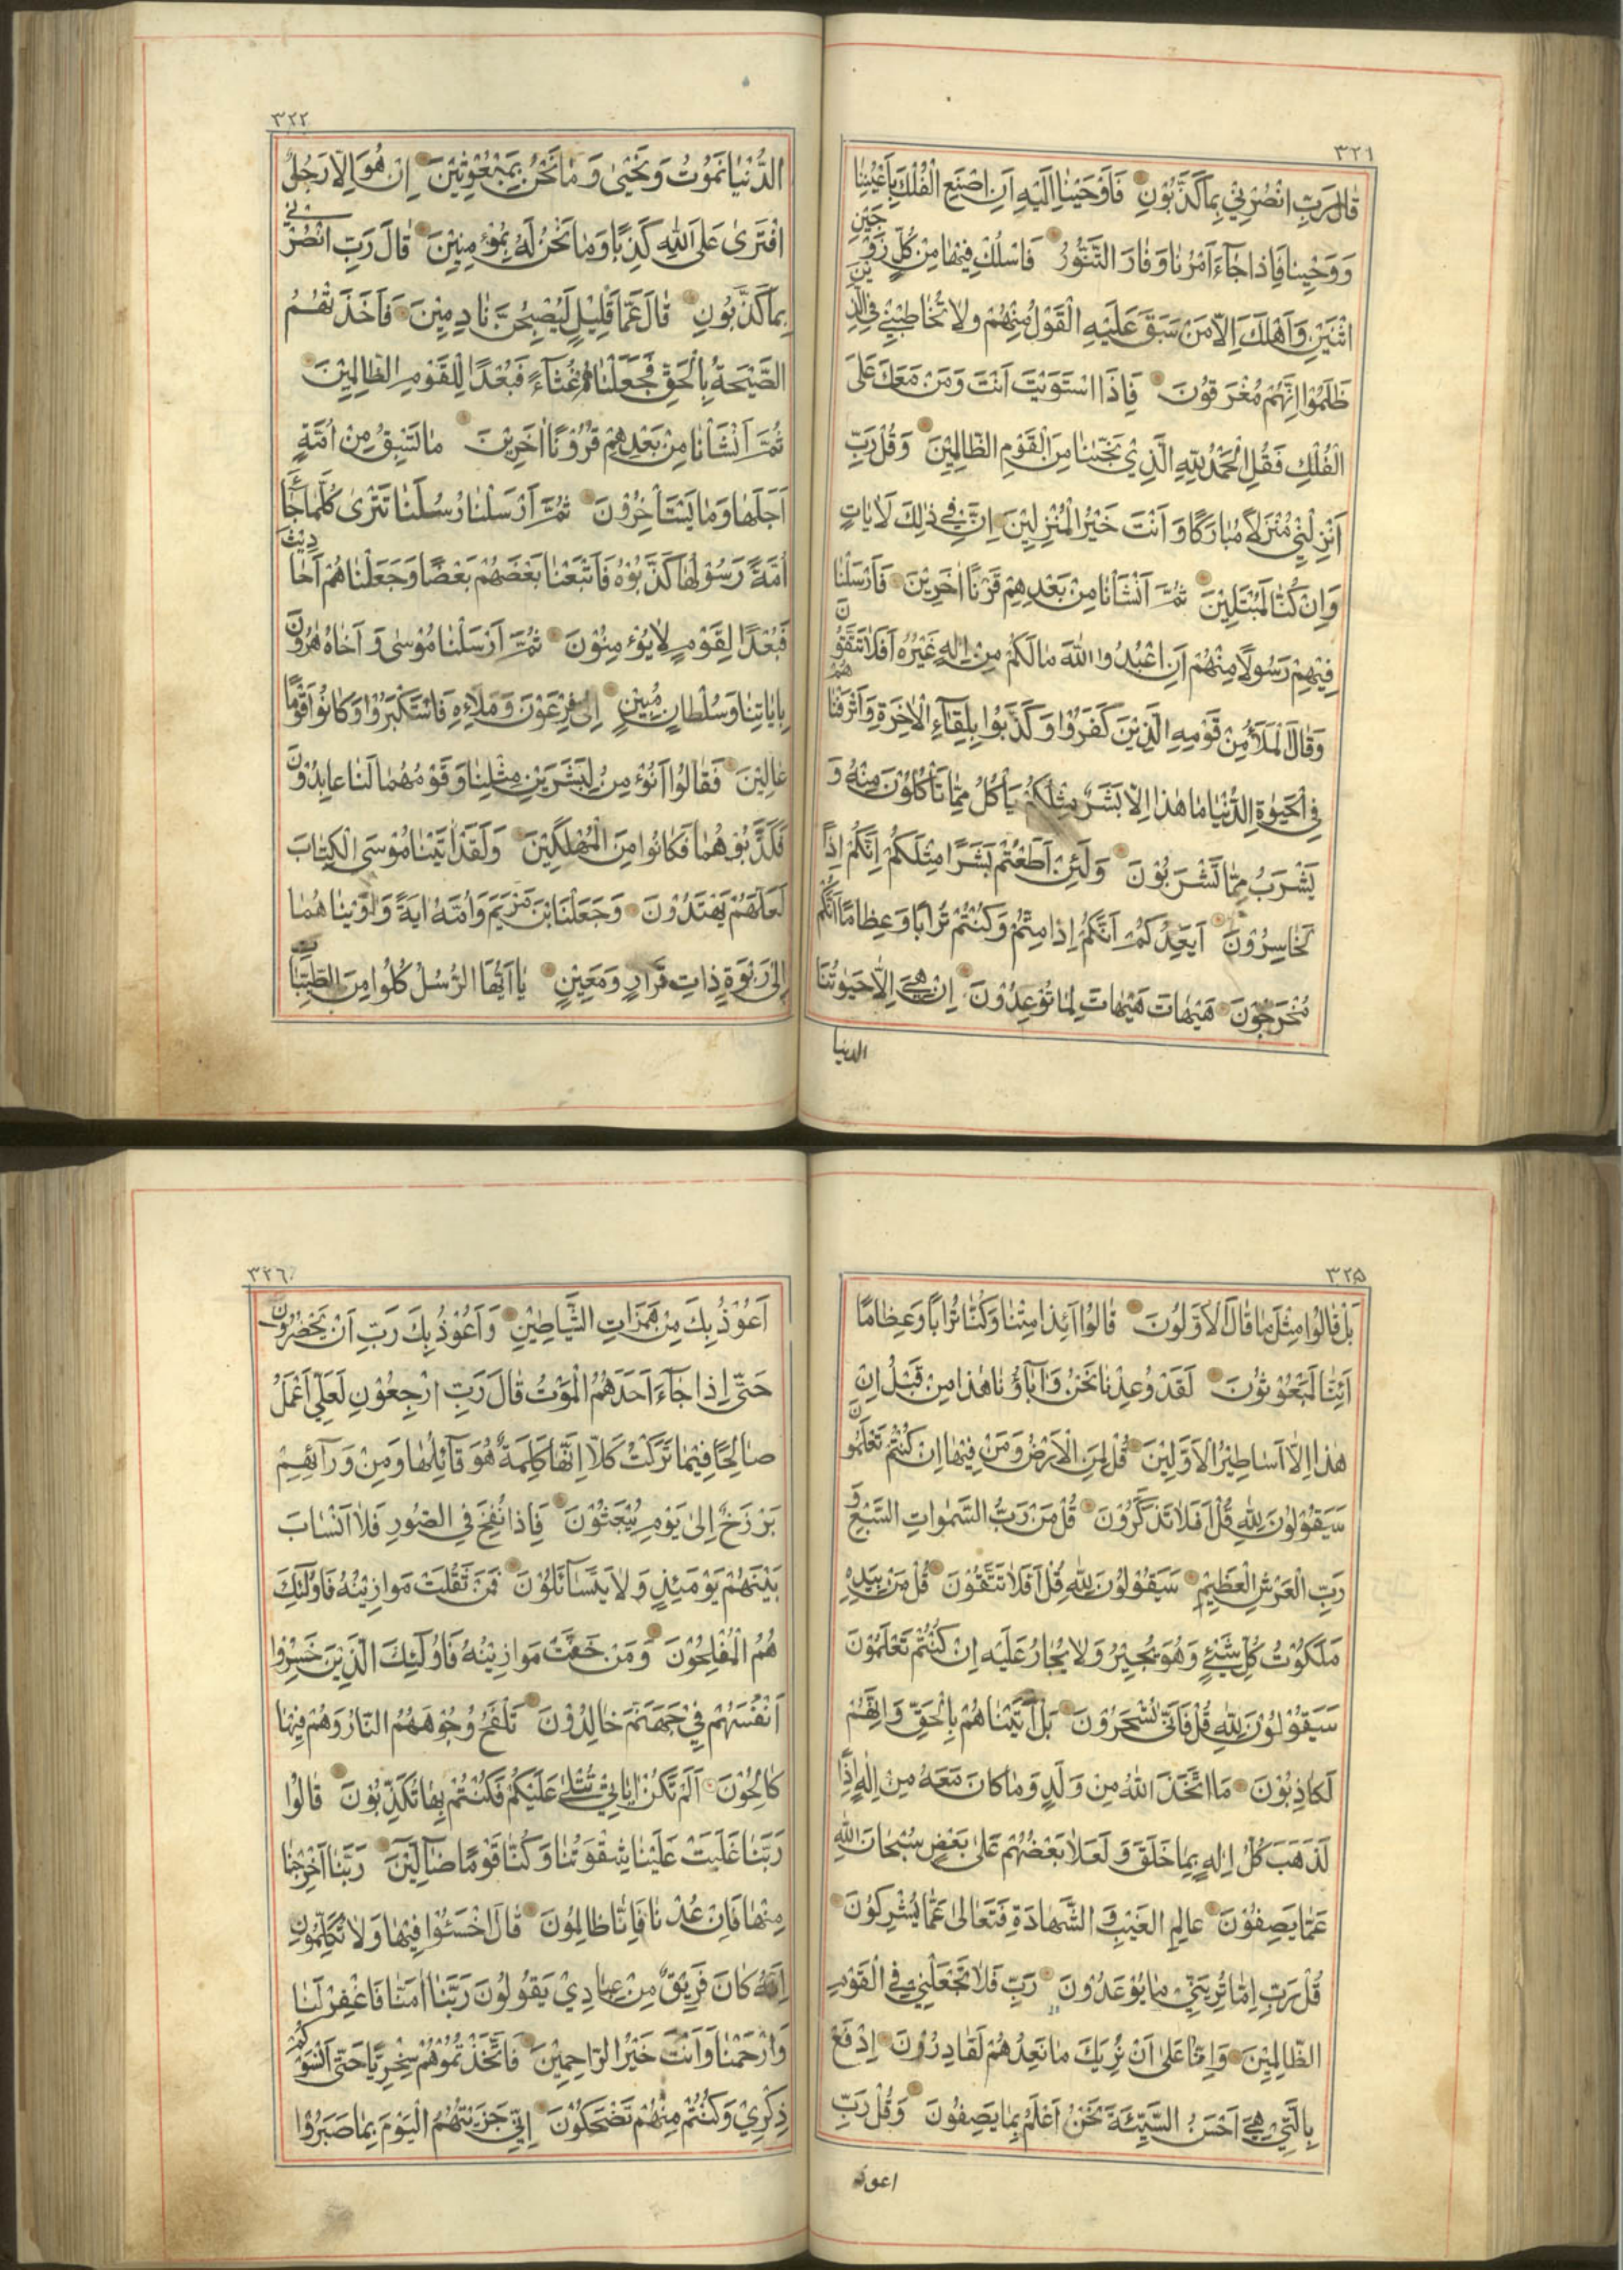 ٣٢١
قَالَ رَبِّ انْصُرْنِيْ بِمَا كَذَّبُوْنِ فَاَوْحَيْنَا اِلَيْهِ اَنِ اصْنَعِ الْفُلْكَ بِاَعْيُنِنَا
وَوَحْيِنَا فَاِذَا جَآءَ اَمْرُنَا وَفَارَ التَّنُّوْرُ فَاسْلُكْ فِيْهَا مِنْ كُلٍّ زَوْجَيْنِ
اثْنَيْنِ وَاَهْلَكَ اِلَّا مَنْ سَبَقَ عَلَيْهِ الْقَوْلُ مِنْهُمْ وَلَا تُخَاطِبْنِيْ فِي الَّذِيْنَ
ظَلَمُوْا اِنَّهُمْ مُغْرَقُوْنَ فَاِذَا اسْتَوَيْتَ اَنْتَ وَمَنْ مَعَكَ عَلَى
الْفُلْكِ فَقُلِ الْحَمْدُ لِلّٰهِ الَّذِيْ نَجّٰينَا مِنَ الْقَوْمِ الظَّالِمِيْنَ وَقُلْ رَبِّ
اَنْزِلْنِيْ مُنْزَلًا مُبَارَكًا وَاَنْتَ خَيْرُ الْمُنْزِلِيْنَ اِنَّ فِيْ ذٰلِكَ لَاٰيَاتٍ
وَاِنْ كُنَّا لَمُبْتَلِيْنَ ثُمَّ اَنْشَاْنَا مِنْ بَعْدِهِمْ قَرْنًا اٰخَرِيْنَ فَاَرْسَلْنَا
فِيْهِمْ رَسُولًا مِنْهُمْ اَنِ اعْبُدُوا اللّٰهَ مَا لَكُمْ مِنْ اِلٰهٍ غَيْرُهُ اَفَلَا تَتَّقُوْنَ
وَقَالَ الْمَلَاُ مِنْ قَوْمِهِ الَّذِيْنَ كَفَرُوْا وَكَذَّبُوا بِلِقَآءِ الْاٰخِرَةِ وَاَتْرَفْنَاهُمْ
فِي الْحَيٰوةِ الدُّنْيَا مَا هٰذَا اِلَّا بَشَرٌ مِثْلُكُمْ يَاْكُلُ مِمَّا تَاْكُلُوْنَ مِنْهُ وَ
يَشْرَبُ مِمَّا تَشْرَبُوْنَ وَلَئِنْ اَطَعْتُمْ بَشَرًا مِثْلَكُمْ اِنَّكُمْ اِذًا
لَخَاسِرُوْنَ اَيَعِدُكُمْ اَنَّكُمْ اِذَا مِتُّمْ وَكُنْتُمْ تُرَابًا وَعِظَامًا اَنَّكُمْ
مُخْرَجُوْنَ هَيْهَاتَ هَيْهَاتَ لِمَا تُوْعَدُوْنَ اِنْ هِيَ اِلَّا حَيٰوتُنَا
الدنيا
٣٢٢
الدُّنْيَا نَمُوْتُ وَنَحْيٰى وَمَا نَحْنُ بِمَبْعُوْثِيْنَ اِنْ هُوَ اِلَّا رَجُلٌ
افْتَرٰى عَلَى اللّٰهِ كَذِبًا وَمَا نَحْنُ لَهُ بِمُؤْمِنِيْنَ قَالَ رَبِّ انْصُرْنِيْ
بِمَا كَذَّبُوْنِ قَالَ عَمَّا قَلِيْلٍ لَيُصْبِحُنَّ نَادِمِيْنَ فَاَخَذَتْهُمُ
الصَّيْحَةُ بِالْحَقِّ فَجَعَلْنَاهُمْ غُثَآءً فَبُعْدًا لِلْقَوْمِ الظَّالِمِيْنَ
ثُمَّ اَنْشَاْنَا مِنْ بَعْدِهِمْ قُرُوْنًا اٰخَرِيْنَ مَا تَسْبِقُ مِنْ اُمَّةٍ
اَجَلَهَا وَمَا يَسْتَاْخِرُوْنَ ثُمَّ اَرْسَلْنَا رُسُلَنَا تَتْرٰى كُلَّمَا جَآءَ
اُمَّةً رَسُوْلُهَا كَذَّبُوْهُ فَاَتْبَعْنَا بَعْضَهُمْ بَعْضًا وَجَعَلْنَاهُمْ اَحَادِيْثَ
فَبُعْدًا لِقَوْمٍ لَا يُؤْمِنُوْنَ ثُمَّ اَرْسَلْنَا مُوْسٰى وَاَخَاهُ هٰرُوْنَ
بِاٰيَاتِنَا وَسُلْطَانٍ مُبِيْنٍ اِلٰى فِرْعَوْنَ وَمَلَائِهِ فَاسْتَكْبَرُوْا وَكَانُوْا قَوْمًا
عَالِيْنَ فَقَالُوْا اَنُؤْمِنُ لِبَشَرَيْنِ مِثْلِنَا وَقَوْمُهُمَا لَنَا عَابِدُوْنَ
فَكَذَّبُوْهُمَا فَكَانُوْا مِنَ الْمُهْلَكِيْنَ وَلَقَدْ اٰتَيْنَا مُوْسَى الْكِتَابَ
لَعَلَّهُمْ يَهْتَدُوْنَ وَجَعَلْنَا ابْنَ مَرْيَمَ وَاُمَّهُ اٰيَةً وَاٰوَيْنَاهُمَا
اِلٰى رَبْوَةٍ ذَاتِ قَرَارٍ وَمَعِيْنٍ يَا اَيُّهَا الرُّسُلُ كُلُوْا مِنَ الطَّيِّبَاتِ
٣٢٥
بَلْ قَالُوْا مِثْلَ مَا قَالَ الْاَوَّلُوْنَ قَالُوْا اَئِذَا مِتْنَا وَكُنَّا تُرَابًا وَعِظَامًا
اَئِنَّا لَمَبْعُوْثُوْنَ لَقَدْ وُعِدْنَا نَحْنُ وَاٰبَآؤُنَا هٰذَا مِنْ قَبْلُ اِنْ
هٰذَا اِلَّا اَسَاطِيْرُ الْاَوَّلِيْنَ قُلْ لِمَنِ الْاَرْضُ وَمَنْ فِيْهَا اِنْ كُنْتُمْ تَعْلَمُوْنَ
سَيَقُوْلُوْنَ لِلّٰهِ قُلْ اَفَلَا تَذَكَّرُوْنَ قُلْ مَنْ رَبُّ السَّمٰوَاتِ السَّبْعِ وَ
رَبُّ الْعَرْشِ الْعَظِيْمِ سَيَقُوْلُوْنَ لِلّٰهِ قُلْ اَفَلَا تَتَّقُوْنَ قُلْ مَنْ بِيَدِهِ
مَلَكُوْتُ كُلِّ شَيْءٍ وَهُوَ يُجِيْرُ وَلَا يُجَارُ عَلَيْهِ اِنْ كُنْتُمْ تَعْلَمُوْنَ
سَيَقُوْلُوْنَ لِلّٰهِ قُلْ فَاَنّٰى تُسْحَرُوْنَ بَلْ اَتَيْنَاهُمْ بِالْحَقِّ وَاِنَّهُمْ
لَكَاذِبُوْنَ مَا اتَّخَذَ اللّٰهُ مِنْ وَلَدٍ وَمَا كَانَ مَعَهُ مِنْ اِلٰهٍ اِذًا
لَذَهَبَ كُلُّ اِلٰهٍ بِمَا خَلَقَ وَلَعَلَا بَعْضُهُمْ عَلٰى بَعْضٍ سُبْحَانَ اللّٰهِ
عَمَّا يَصِفُوْنَ عَالِمِ الْغَيْبِ وَ الشَّهَادَةِ فَتَعَالٰى عَمَّا يُشْرِكُوْنَ
قُلْ رَبِّ اِمَّا تُرِيَنِّيْ مَا يُوْعَدُوْنَ رَبِّ فَلَا تَجْعَلْنِيْ فِي الْقَوْمِ
الظَّالِمِيْنَ وَاِنَّا عَلٰى اَنْ نُرِيَكَ مَا نَعِدُهُمْ لَقَادِرُوْنَ اِدْفَعْ
بِالَّتِيْ هِيَ اَحْسَنُ السَّيِّئَةَ نَحْنُ اَعْلَمُ بِمَا يَصِفُوْنَ وَقُلْ رَبِّ
اعوذ
٣٢٦
اَعُوْذُ بِكَ مِنْ هَمَزَاتِ الشَّيَاطِيْنِ وَاَعُوْذُ بِكَ رَبِّ اَنْ يَحْضُرُوْنِ
حَتّٰى اِذَا جَآءَ اَحَدَهُمُ الْمَوْتُ قَالَ رَبِّ ارْجِعُوْنِ لَعَلِّيْ اَعْمَلُ
صَالِحًا فِيْمَا تَرَكْتُ كَلَّا اِنَّهَا كَلِمَةٌ هُوَ قَآئِلُهَا وَمِنْ وَرَآئِهِمْ
بَرْزَخٌ اِلٰى يَوْمِ يُبْعَثُوْنَ فَاِذَا نُفِخَ فِي الصُّوْرِ فَلَا اَنْسَابَ
بَيْنَهُمْ يَوْمَئِذٍ وَلَا يَتَسَآئَلُوْنَ فَمَنْ ثَقُلَتْ مَوَازِيْنُهُ فَاُولٰئِكَ
هُمُ الْمُفْلِحُوْنَ وَمَنْ خَفَّتْ مَوَازِيْنُهُ فَاُولٰئِكَ الَّذِيْنَ خَسِرُوْا
اَنْفُسَهُمْ فِيْ جَهَنَّمَ خَالِدُوْنَ تَلْفَحُ وُجُوْهَهُمُ النَّارُ وَهُمْ فِيْهَا
كَالِحُوْنَ اَلَمْ تَكُنْ اٰيَاتِيْ تُتْلٰى عَلَيْكُمْ فَكُنْتُمْ بِهَا تُكَذِّبُوْنَ قَالُوْا
رَبَّنَا غَلَبَتْ عَلَيْنَا شِقْوَتُنَا وَكُنَّا قَوْمًا ضَآلِّيْنَ رَبَّنَا اَخْرِجْنَا
مِنْهَا فَاِنْ عُدْنَا فَاِنَّا ظَالِمُوْنَ قَالَ اخْسَئُوْا فِيْهَا وَلَا تُكَلِّمُوْنِ
اِنَّهُ كَانَ فَرِيْقٌ مِنْ عِبَادِيْ يَقُوْلُوْنَ رَبَّنَا اٰمَنَّا فَاغْفِرْ لَنَا
وَارْحَمْنَا وَاَنْتَ خَيْرُ الرَّاحِمِيْنَ فَاتَّخَذْتُمُوْهُمْ سِخْرِيًّا حَتّٰى اَنْسَوْكُمْ
ذِكْرِيْ وَكُنْتُمْ مِنْهُمْ تَضْحَكُوْنَ اِنِّيْ جَزَيْتُهُمُ الْيَوْمَ بِمَا صَبَرُوْا